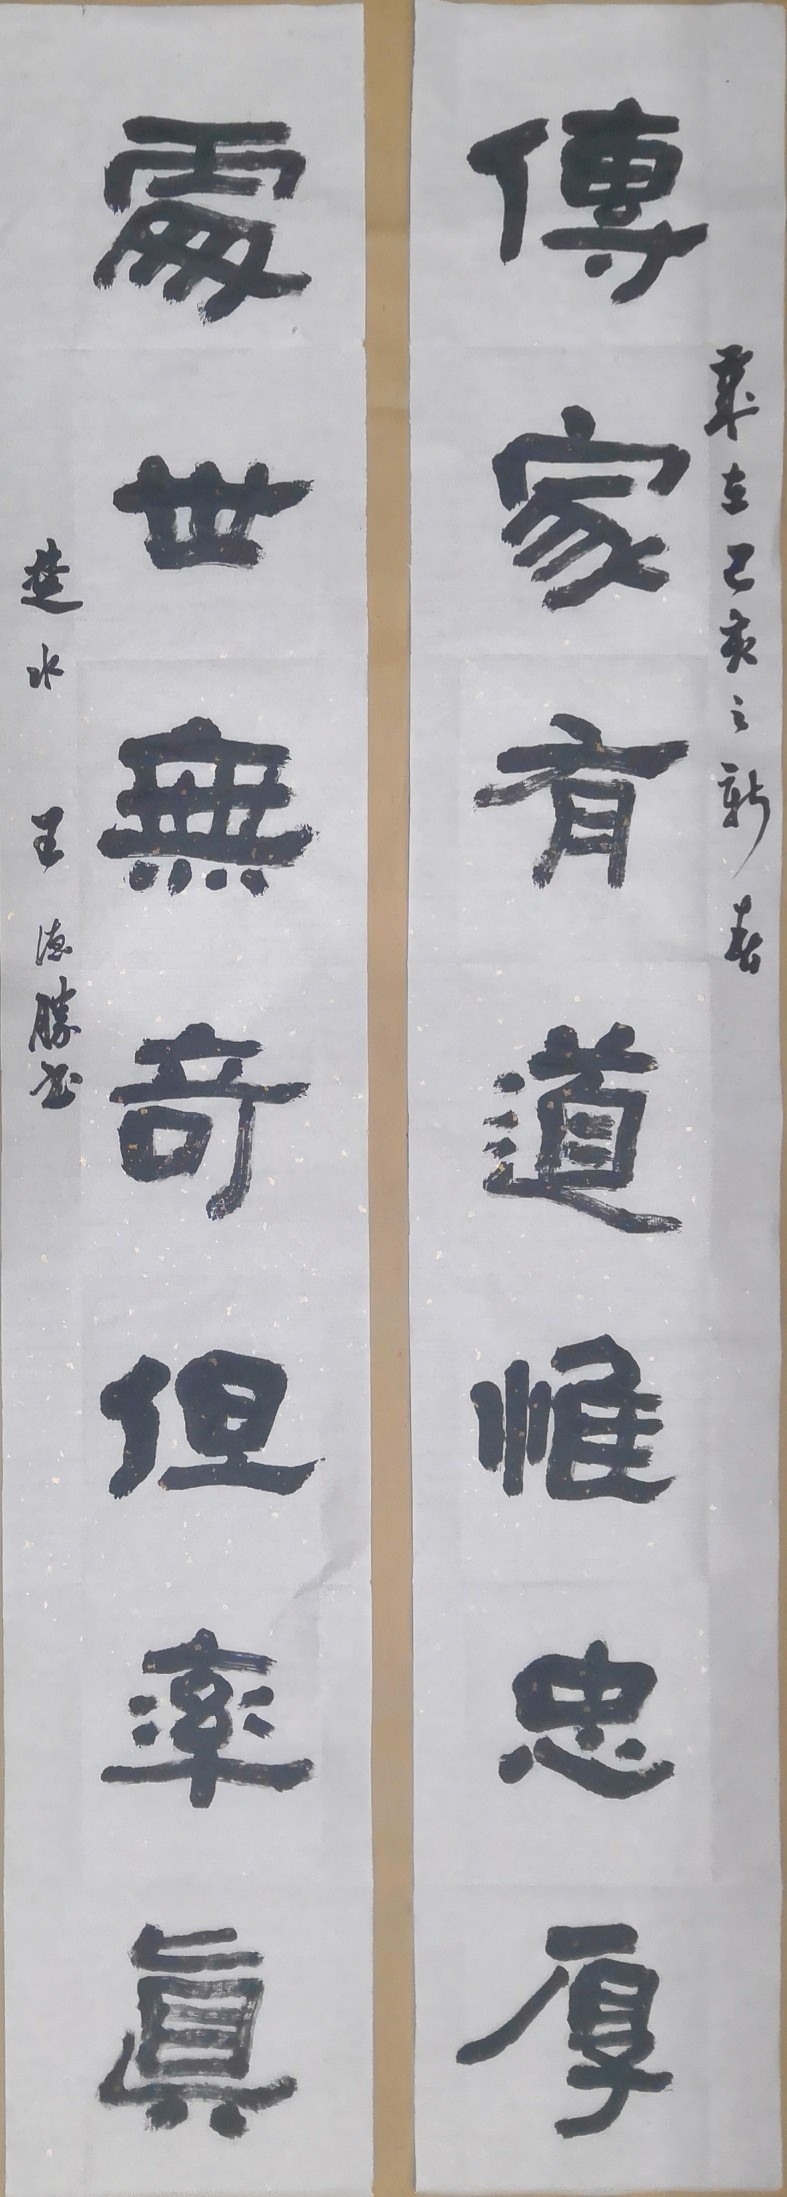 歲在己亥之新春
傳家有道惟忠厚
處世無奇但率真
楚水 王德勝書